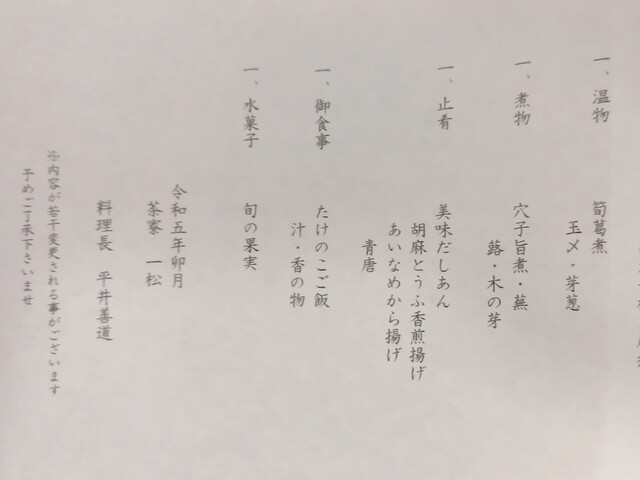 一、温物
筍葛煮
玉〆・芽葱
一、煮物
穴子旨煮・蕪
蕗・木の芽
一、止肴
美味だしあん
胡麻とうふ香煎揚げ
あいなめから揚げ
青唐
一、御食事
たけのこご飯
汁・香の物
一、水菓子
旬の果実
令和五年卯月
茶寮　一松
料理長　平井善道
※内容が若干変更される事がございます
予めご了承下さいませ